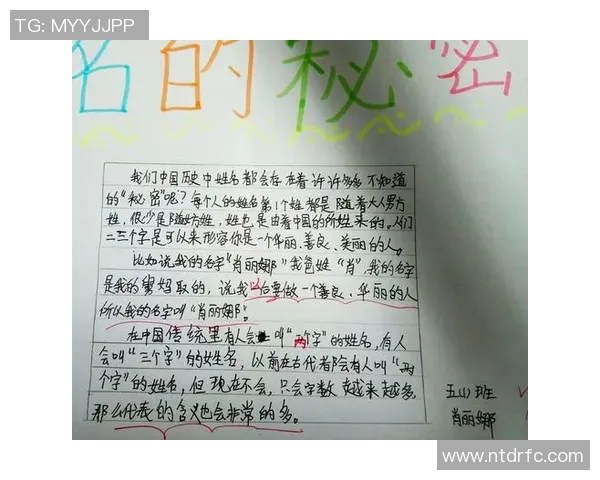 TG: MYYJJPP
名的秘密
我们中国历史中姓名都会存在着许许多多不知道
的“秘密”呢?每个人的姓名第1个姓都是随着大人男方
姓,很少是随女方姓,姓也是由着中国的所姓来的。从们
二三个字是可以来形容你是一个华丽、善良、美丽的人。
比如说我的名字“肖丽娜”我爸姓“肖”,我的名字
是我的爹妈取的,说我以后要做一个善良、华丽的人
所以我的名字叫“肖丽娜”。
在中国传统里有人会叫“两个字”的姓名,有人
会叫“三个字”的姓名,以前在古代都会有人叫“两
个字”的姓名,但现在不会,只会字数越来越多,
那么代表的含义也会非常的多。
五(1)班
肖丽娜
www.ntdrfc.com